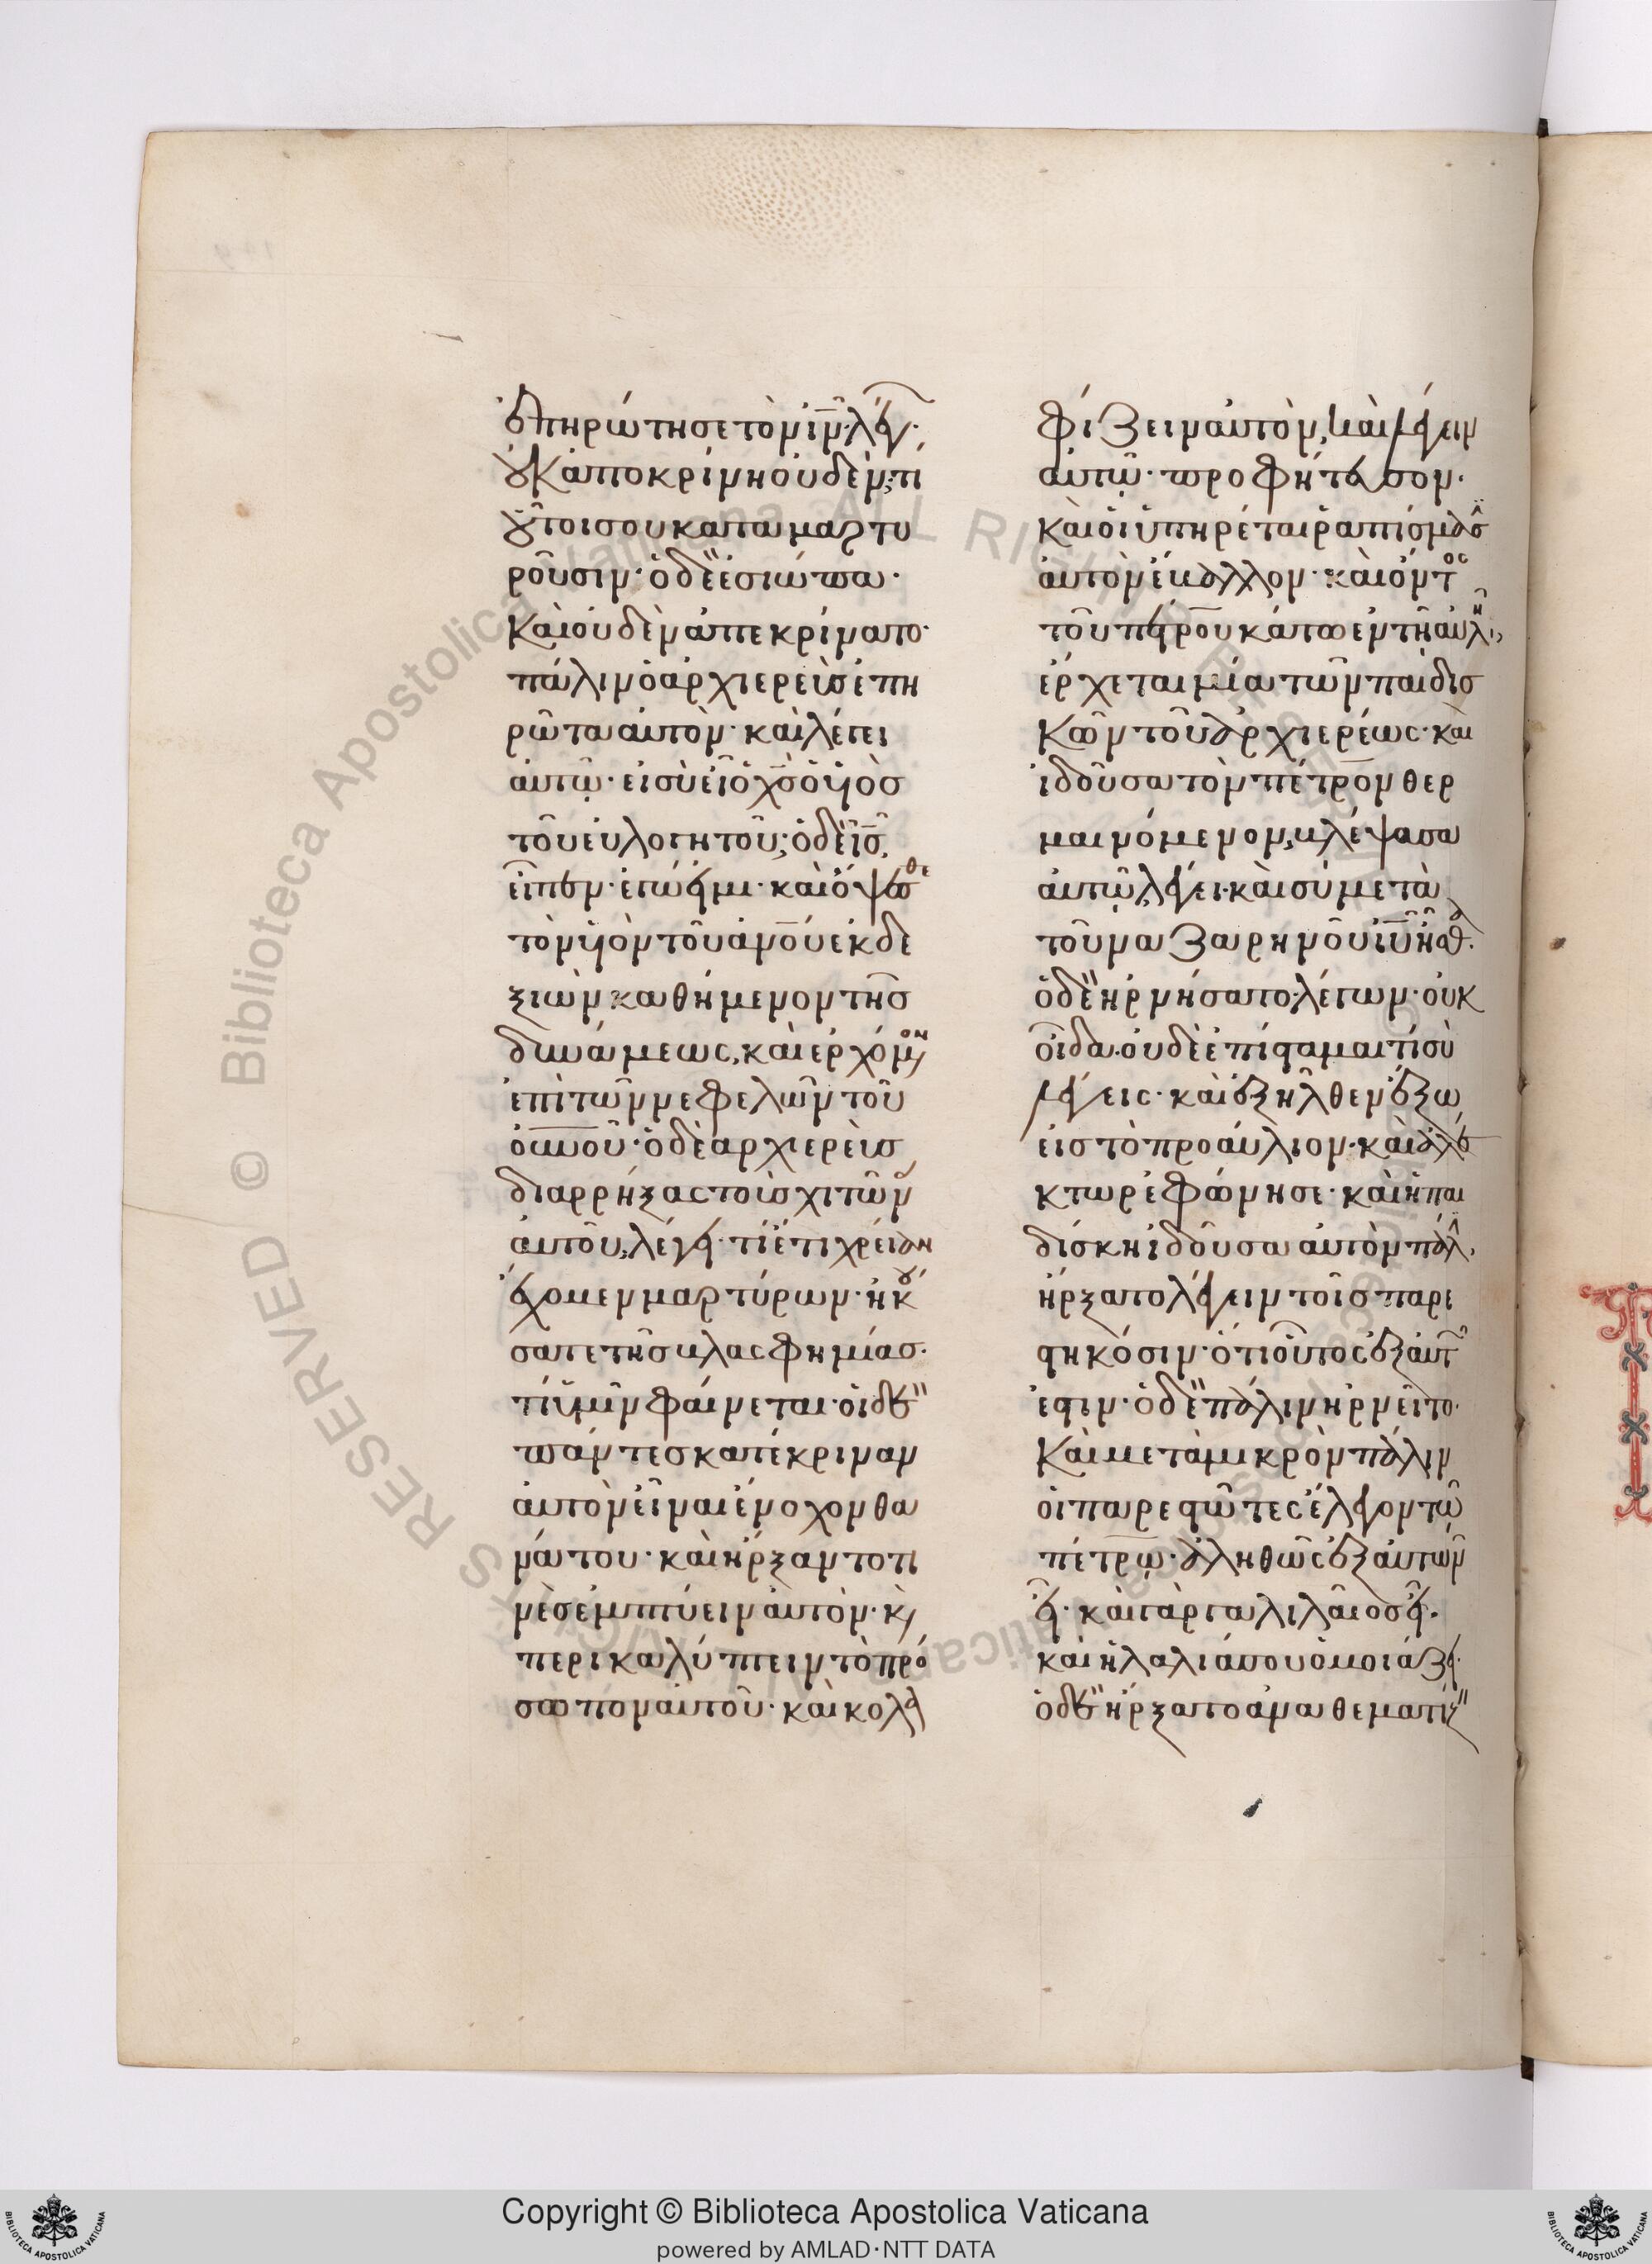 ἐπηρώτησε τὸν ἰν̅· λέγ·
οὐκ ἀποκρίνη οὐδέν; τί
οὗτοί σου καταμαρτυ
ροῦσιν· ὁ δὲ ἐσιώπα·
καὶ οὐδὲν ἀπεκρίνατο·
πάλιν ὁ ἀρχιερεὺς ἐπη
ρῶτα αὐτὸν· καὶ λέγει
αὐτῷ· εἰ σὺ εἶ ὁ χς̅ ὁ υἱὸς
τοῦ εὐλογητοῦ; ὁ δὲ ις̅
εἶπεν· ἐγώ εἰμι· καὶ ὄψεσθε
τὸν υἱὸν τοῦ ανου̅ ἐκ δε
ξιῶν καθήμενον τῆς
δυνάμεως, καὶ ἐρχόμον
ἐπὶ τῶν νεφελῶν τοῦ
ουνου̅· ὁ δὲ ἀρχιερεὺς
διαρρήξας τοὺς χιτῶν
αὐτοῦ, λέγει· τί ἔτι χρείαν
ἔχομεν μαρτύρων· ἠκού
σατε τῆς βλασφημίας·
τί ὑμῖν φαίνεται· οἱ δὲ
πάντες κατέκριναν
αὐτὸν εἶναι ἔνοχον θα
νάτου· καὶ ἤρξαντό τι
νὲς ἐμπτύειν αὐτὸν· κ
περικαλύπτειν τὸ πρό
σωπον αὐτοῦ· καὶ κολα
φίζειν αὐτὸν, καὶ λέγειν
αὐτῷ· προφήτευσον·
καὶ οἱ ὑπηρέται ῥαπίσμας
αὐτὸν ἔβαλλον· καὶ ὄντος
τοῦ πετρου̅ κάτω ἐν τῇ αὐλῇ,
ἔρχεται μία τῶν παιδισ
κῶν τοῦ ἀρχιερέως· καὶ
ἰδοῦσα τὸν πέτρον̅ θερ
μαινόμενον, βλέψασα
αὐτῷ, λέγει· καὶ σὺ μετὰ
τοῦ ναζαρηνοῦ ιυ̅ ἦσθ·
ὁ δὲ ἠρνήσατο λέγων· οὐκ
οἶδα· οὐδὲ ἐπίσταμαι τί σὺ
λέγεις· καὶ ἐξῆλθεν ἔξω
εἰς τὸ προαύλιον· καὶ ἀλέ
κτωρ ἐφώνησε· καὶ ἡ παι
δίσκη ἰδοῦσα αὐτὸν πάλ,
ἤρξατο λέγειν τοῖς παρε
στηκόσιν· ὅτι οὗτος ἐξ αὐτ
ἐστιν· ὁ δὲ πάλιν ἠρνεῖτο·
καὶ μετὰ μικρὸν πάλιν
οἱ παρεστῶτες ἔλεγον τῷ
πέτρω̅· ἀληθῶς ἐξ αὐτῶν
εἶ· καὶ γὰρ γαλιλαῖος εἶ·
καὶ ἡ λαλιά σου ὁμοιάζει·
ὁ δὲ ἤρξατο ἀναθεματίζ
© Biblioteca Apostolica Vaticana ALL RIGHTS RESERVED
Copyright © Biblioteca Apostolica Vaticana
powered by AMLAD·NTT DATA